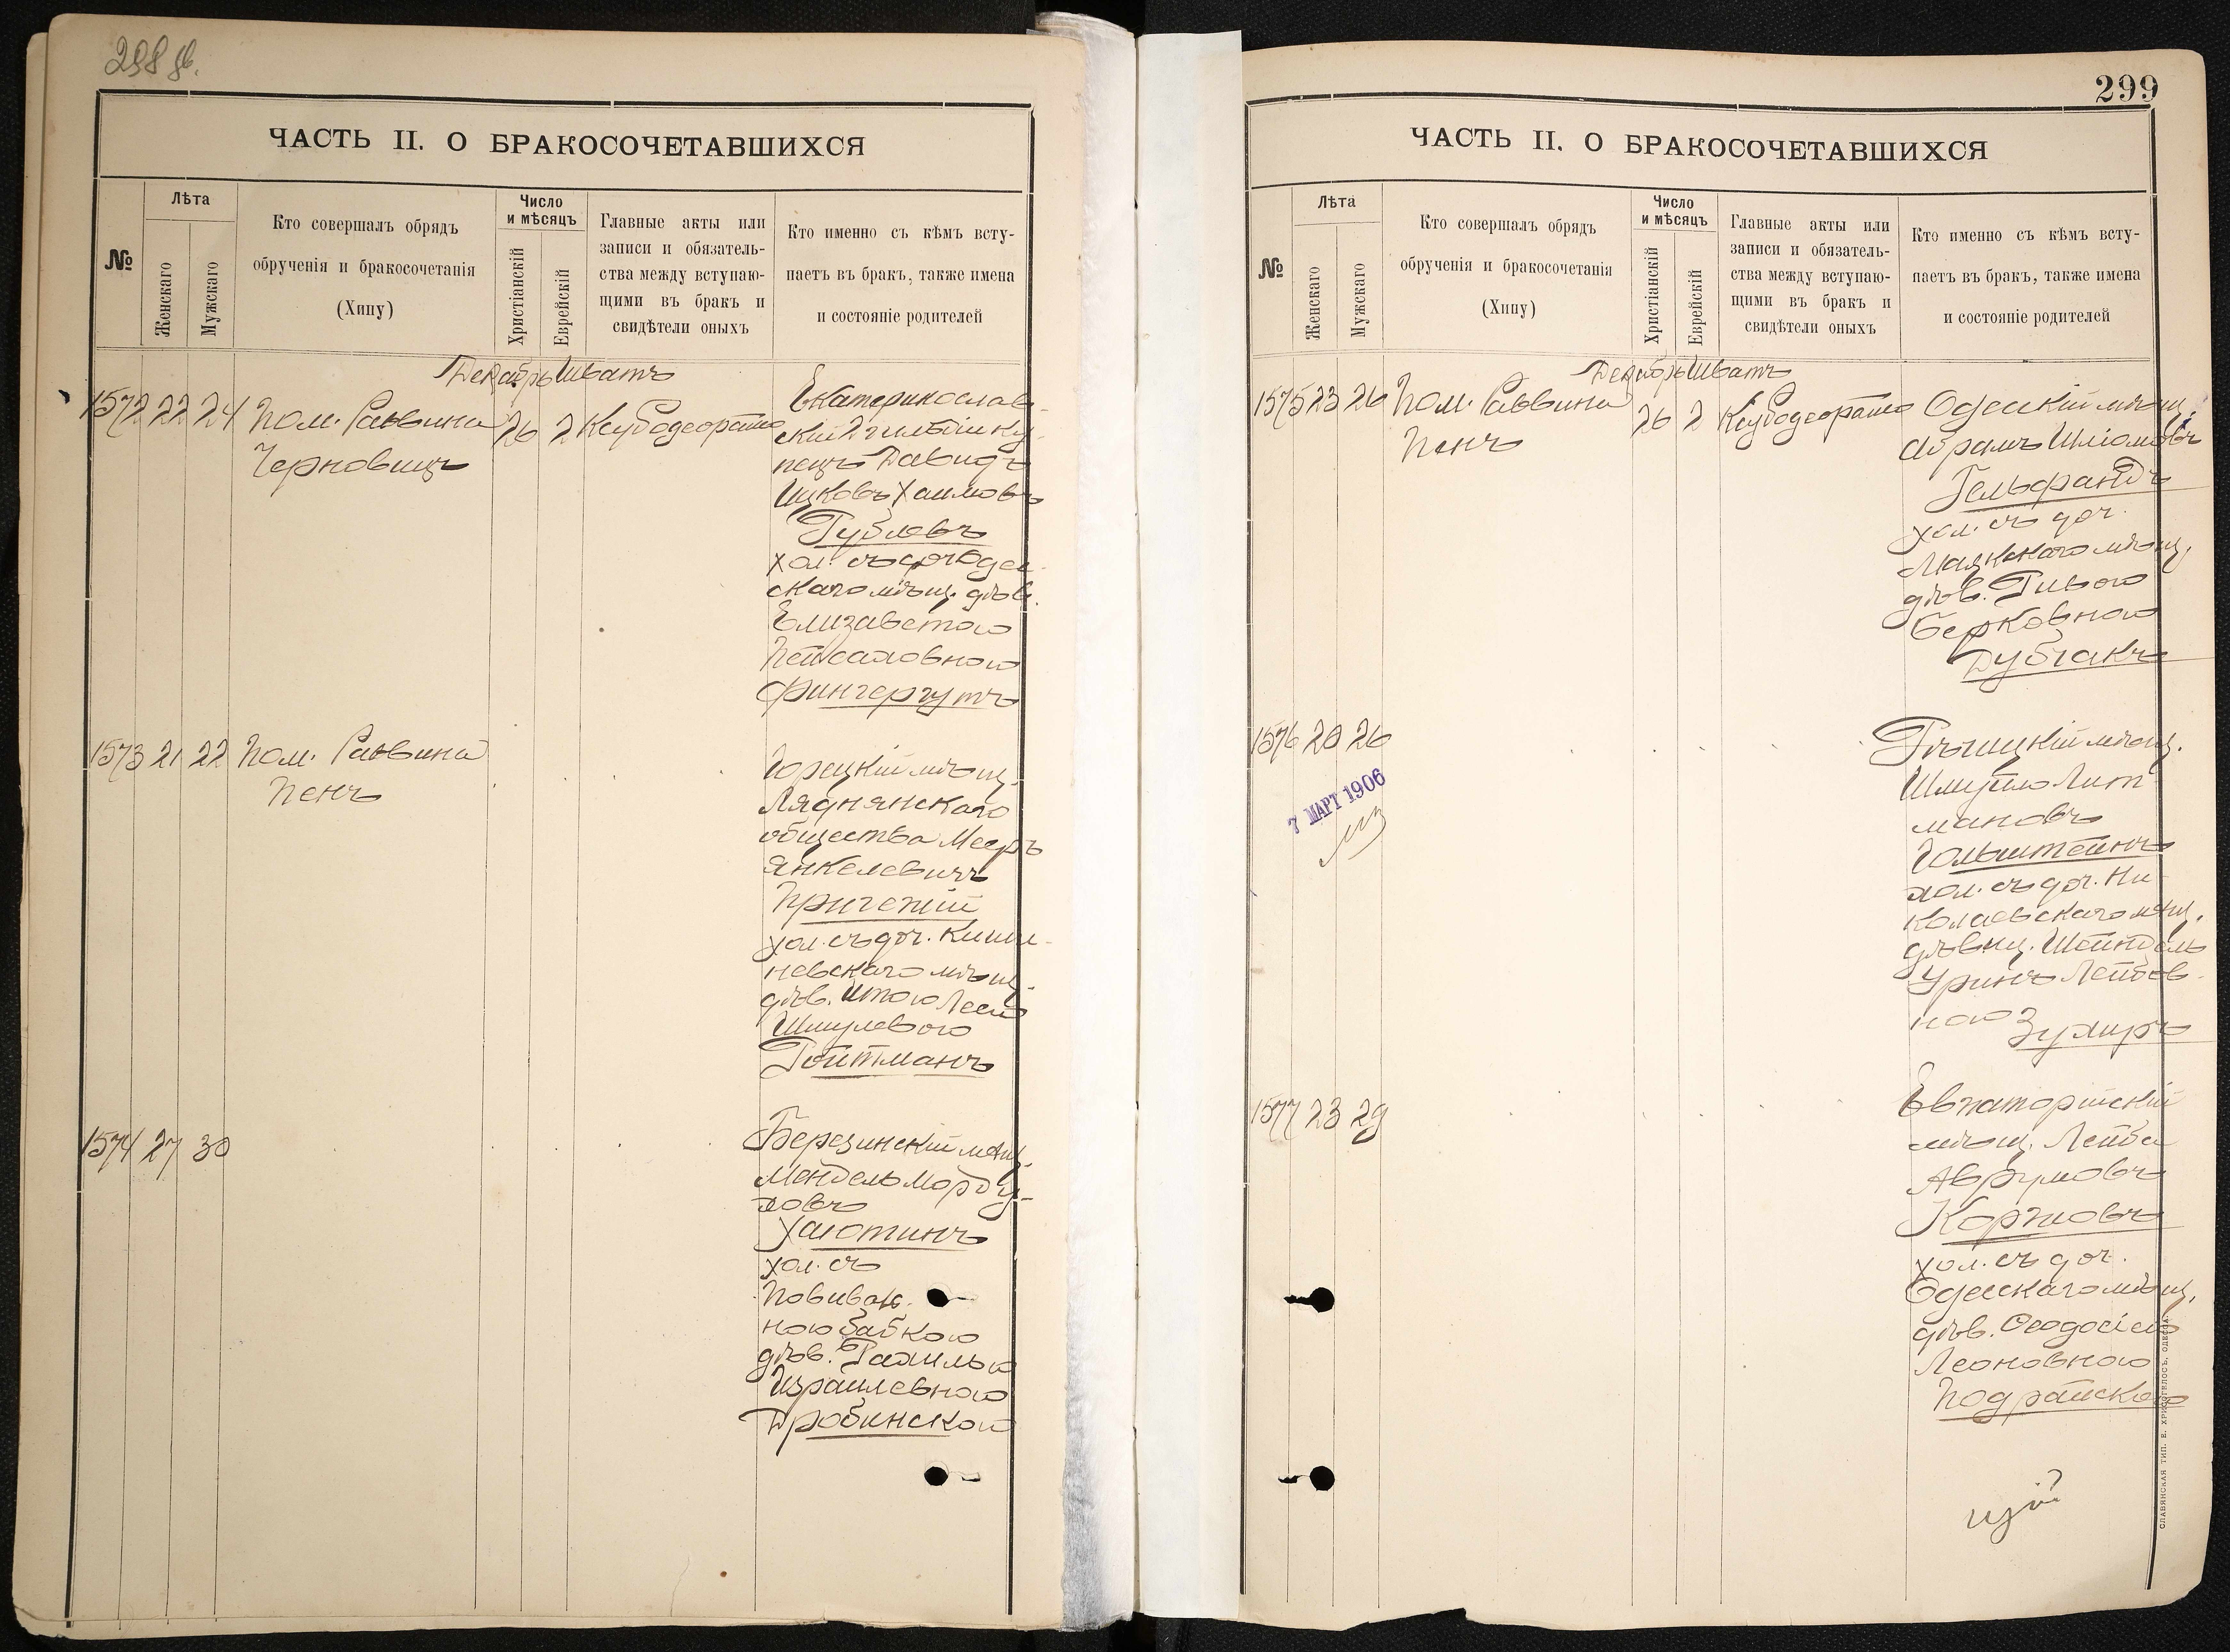 298 об.
ЧАСТЬ II. О БРАКОСОЧЕТАВШИХСЯ
№
Лѣта
Женскаго
Мужскаго
Кто совершалъ обрядъ
обрученія и бракосочетанія
(Хипу)
Число
и мѣсяцъ
Христіанскій
Еврейскій
Главные акты или
записи и обязатель-
ства между вступаю-
щими въ бракъ и
свидѣтели оныхъ
Кто именно съ кѣмъ всту-
паетъ въ бракъ, также имена
и состояніе родителей
Декабрь Шватъ
1572 22 24 Пом. Раввина
Черновицъ
26 2
Екатеринослав-
скій 2 гильдіи ку-
пецъ Давидъ
Ицковъ Хаимовъ
Гублеръ
хол. съ доч. Одес-
скаго мѣщ. дѣв.
Елизаветою
Пейсаховною
Фингергутъ
1573 21 22 Пом. Раввина
Пенъ
Горецкій мѣщ.
Ляднянскаго
общества Мееръ
Янкелевичъ
Пригожій
хол. съ доч. Киши-
невскаго мѣщ.
дѣв. Итою Леею
Шмулевою
Гойтманъ
1574 27 30
Березинскій мѣщ.
Мендель Морду-
ховъ
Хаютинъ
хол. съ
Повиваль-
ною бабкою
дѣв. Рахилью
Израилевною
Дробинскою
299
ЧАСТЬ II. О БРАКОСОЧЕТАВШИХСЯ
№
Лѣта
Женскаго
Мужскаго
Кто совершалъ обрядъ
обрученія и бракосочетанія
(Хипу)
Число
и мѣсяцъ
Христіанскій
Еврейскій
Главные акты или
записи и обязатель-
ства между вступаю-
щими въ бракъ и
свидѣтели оныхъ
Кто именно съ кѣмъ всту-
паетъ въ бракъ, также имена
и состояніе родителей
Декабрь Шватъ
1575 23 26 Пом. Раввина
Пенъ
26 2
Одесскій мѣщ.
Абрамъ Шліомовъ
Гельфандъ
хол. съ доч.
Маякскаго мѣщ.
дѣв.
Берковною
Дубчакъ
1576 20 26
7 МАРТ 1906
Рѣчицкій мѣщ.
Шмуйло Лит-
мановъ
Гольштейнъ
хол. съ доч. Ни-
колаевскаго мѣщ.
дѣвиц. Шейндель
Лейбов-
ною
1577 23 29
Евпаторійскій
мѣщ. Лейба
Аврумовъ
Коржовъ
хол. съ доч.
Одесскаго мѣщ.
дѣв. Феодосіею
Леоновною
Подрайскою
СЛАВЯНСКАЯ ТИП. Е. ХРИСОГЕЛОСЪ, ОДЕССА.